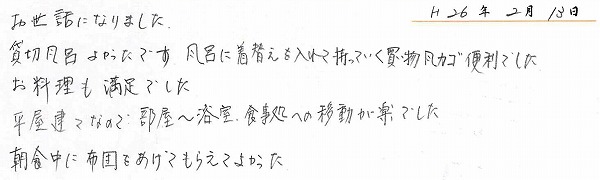 H26年2月13日
お世話になりました.
貸切風呂 よかったです 風呂に着替えを入れて持っていく買い物風カゴ便利でした
お料理も満足でした
平屋建てなので 部屋～浴室、食事処への移動が楽でした
朝食中に布団をあげてもらえてよかった